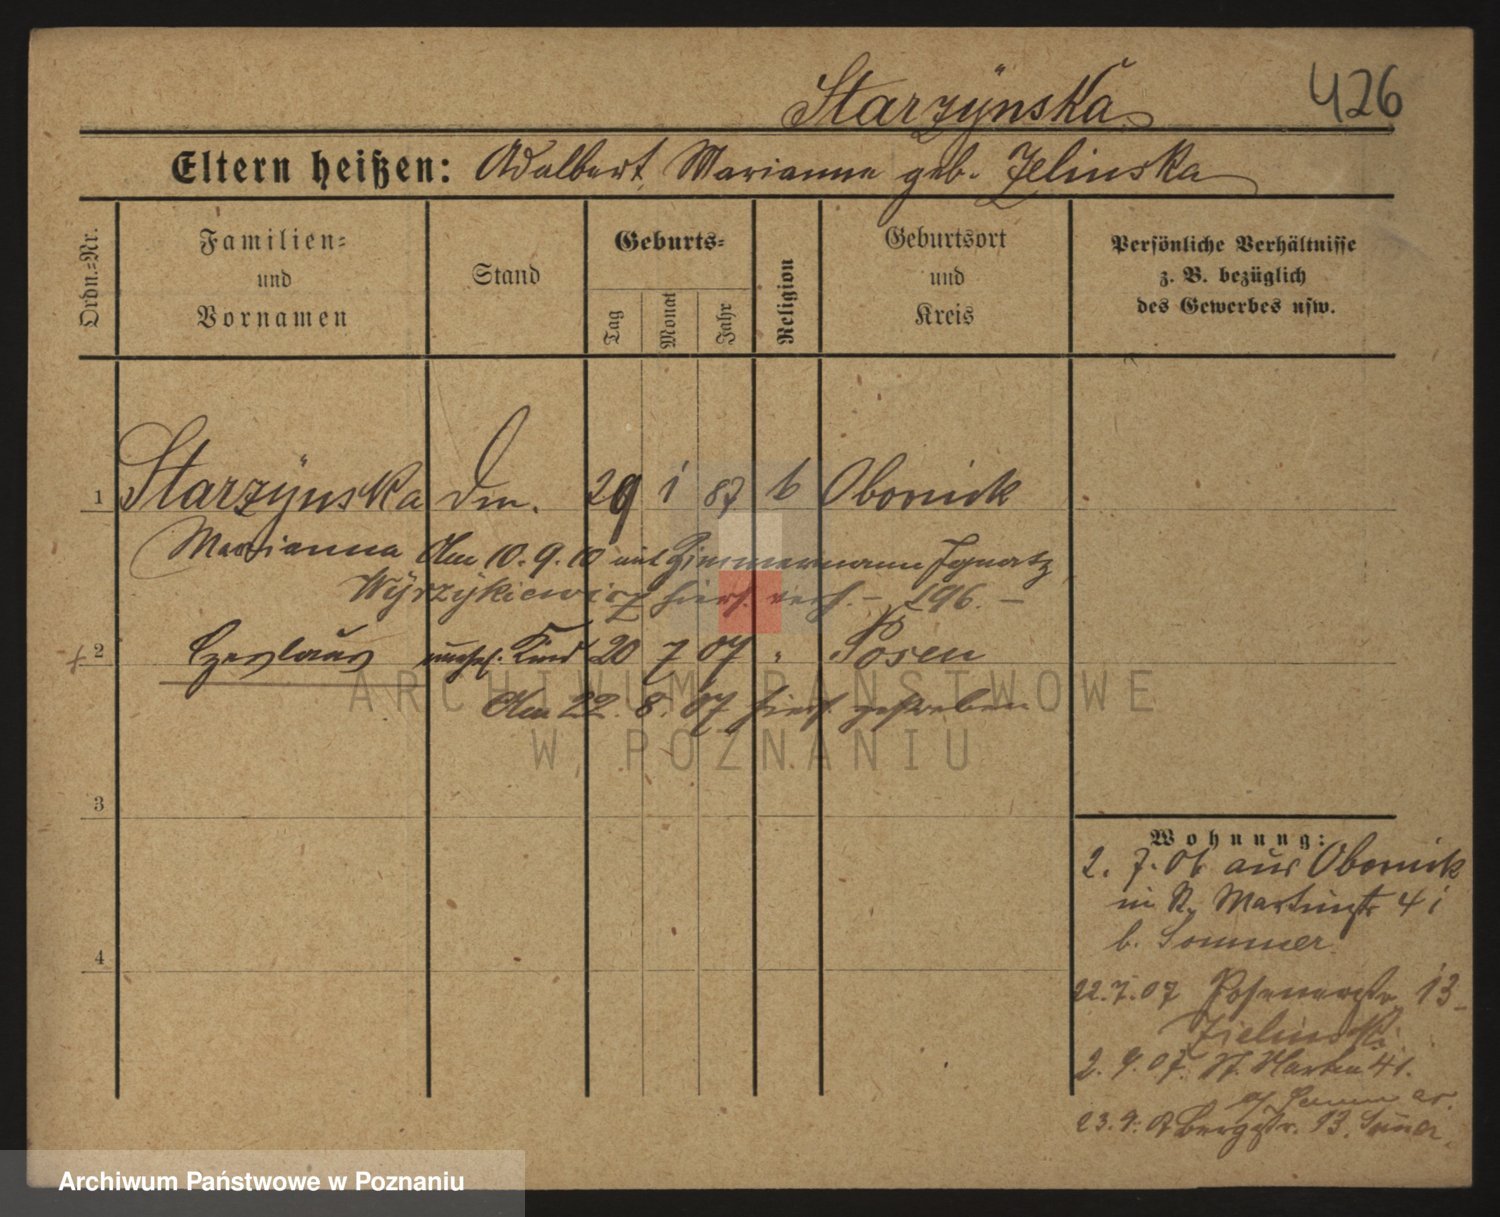 Starzÿnska
426
Eltern heißen: Adalbert, Marianne geb. Zelinska
Ordn.=Nr.
Familien=
und
Vornamen
Stand
Geburts=
Tag
Monat
Jahr
Religion
Geburtsort
und
Kreis
Persönliche Verhältnisse
z. B. bezüglich
des Gewerbes usw.
1 Starzÿnska 29 1 87 k Obornick
Marianna Am 10.9.10 mit Zimmermann Ignatz
Wÿrzÿkiewicz hiers. verh. – 196. –
2 Czeslaus unehel. Kind 20 7 07 " Posen
Am 22. 8. 07 hiers. gestorben
3
4
Wohnung:
2. 7. 06 aus Obornick
in St. Martinstr 41
b. Sommer
22.7.07 Posenerstr. 13
Zielinski
2. 9. 07. St. Martin 41.
23. 9. Bergstr. 13.
ARCHIWUM PAŃSTWOWE
W POZNANIU
Archiwum Państwowe w Poznaniu